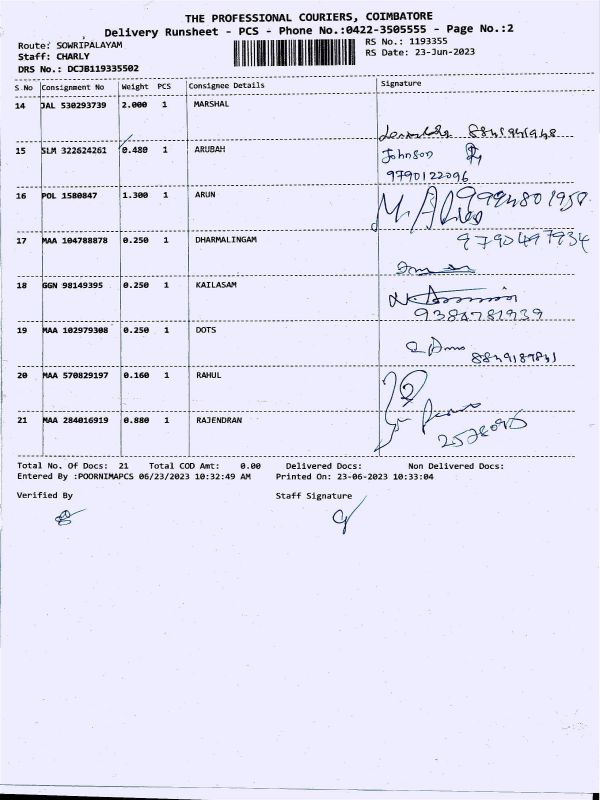 THE PROFESSIONAL COURIERS, COIMBATORE
Delivery Runsheet - PCS - Phone No.:0422-3505555 - Page No.:2
Route: SOWRIPALAYAM
RS No.: 1193355
Staff: CHARLY
RS Date: 23-Jun-2023
DRS No.: DCJB119335502
S.No Consignment No Weight PCS Consignee Details Signature
14 JAL 530293739 2.000 1 MARSHAL
15 SLM 322624261 0.480 1 ARUBAH Johnson
9790122096
16 POL 1580847 1.300 1 ARUN
17 MAA 104788878 0.250 1 DHARMALINGAM
18 GGN 98149395 0.250 1 KAILASAM
19 MAA 102979308 0.250 1 DOTS
20 MAA 570829197 0.160 1 RAHUL
21 MAA 284016919 0.880 1 RAJENDRAN
Total No. Of Docs: 21 Total COD Amt: 0.00 Delivered Docs: Non Delivered Docs:
Entered By :POORNIMAPCS 06/23/2023 10:32:49 AM Printed On: 23-06-2023 10:33:04
Verified By Staff Signature